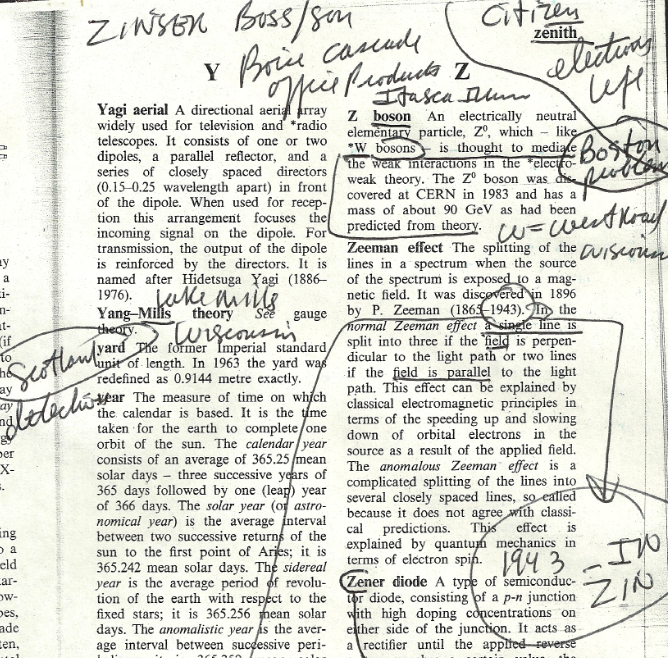 ZINSER BOSS/son
Boise cascade
office Products
Itasca Illinois
citizen
zenith
electrons
left
Y
Yagi aerial A directional aerial array
widely used for television and *radio
telescopes. It consists of one or two
dipoles, a parallel reflector, and a
series of closely spaced directors
(0.15–0.25 wavelength apart) in front
of the dipole. When used for recep-
tion this arrangement focuses the
incoming signal on the dipole. For
transmission, the output of the dipole
is reinforced by the directors. It is
named after Hidetsuga Yagi (1886–
1976).
Lake Mills
Yang–Mills theory See gauge
theory.
Wisconsin
yard The former Imperial standard
unit of length. In 1963 the yard was
redefined as 0.9144 metre exactly.
Scotland
detective
year The measure of time on which
the calendar is based. It is the time
taken for the earth to complete one
orbit of the sun. The calendar year
consists of an average of 365.25 mean
solar days – three successive years of
365 days followed by one (leap) year
of 366 days. The solar year (or astro-
nomical year) is the average interval
between two successive returns of the
sun to the first point of Aries; it is
365.242 mean solar days. The sidereal
year is the average period of revolu-
tion of the earth with respect to the
fixed stars; it is 365.256 mean solar
days. The anomalistic year is the aver-
age interval between successive peri-
Z
Z boson An electrically neutral
elementary particle, Z⁰, which – like
*W bosons – is thought to mediate
the weak interactions in the *electro-
weak theory. The Z⁰ boson was dis-
covered at CERN in 1983 and has a
mass of about 90 GeV as had been
predicted from theory.
Boston
problem
W = West Road
Zeeman effect The splitting of the
lines in a spectrum when the source
of the spectrum is exposed to a mag-
netic field. It was discovered in 1896
by P. Zeeman (1865–1943). In the
normal Zeeman effect a single line is
split into three if the field is perpen-
dicular to the light path or two lines
if the field is parallel to the light
path. This effect can be explained by
classical electromagnetic principles in
terms of the speeding up and slowing
down of orbital electrons in the
source as a result of the applied field.
The anomalous Zeeman effect is a
complicated splitting of the lines into
several closely spaced lines, so called
because it does not agree with classi-
cal predictions. This effect is
explained by quantum mechanics in
terms of electron spin.
1943 – IN
ZIN
Zener diode A type of semiconduc-
tor diode, consisting of a p-n junction
with high doping concentrations on
either side of the junction. It acts as
a rectifier until the applied reverse